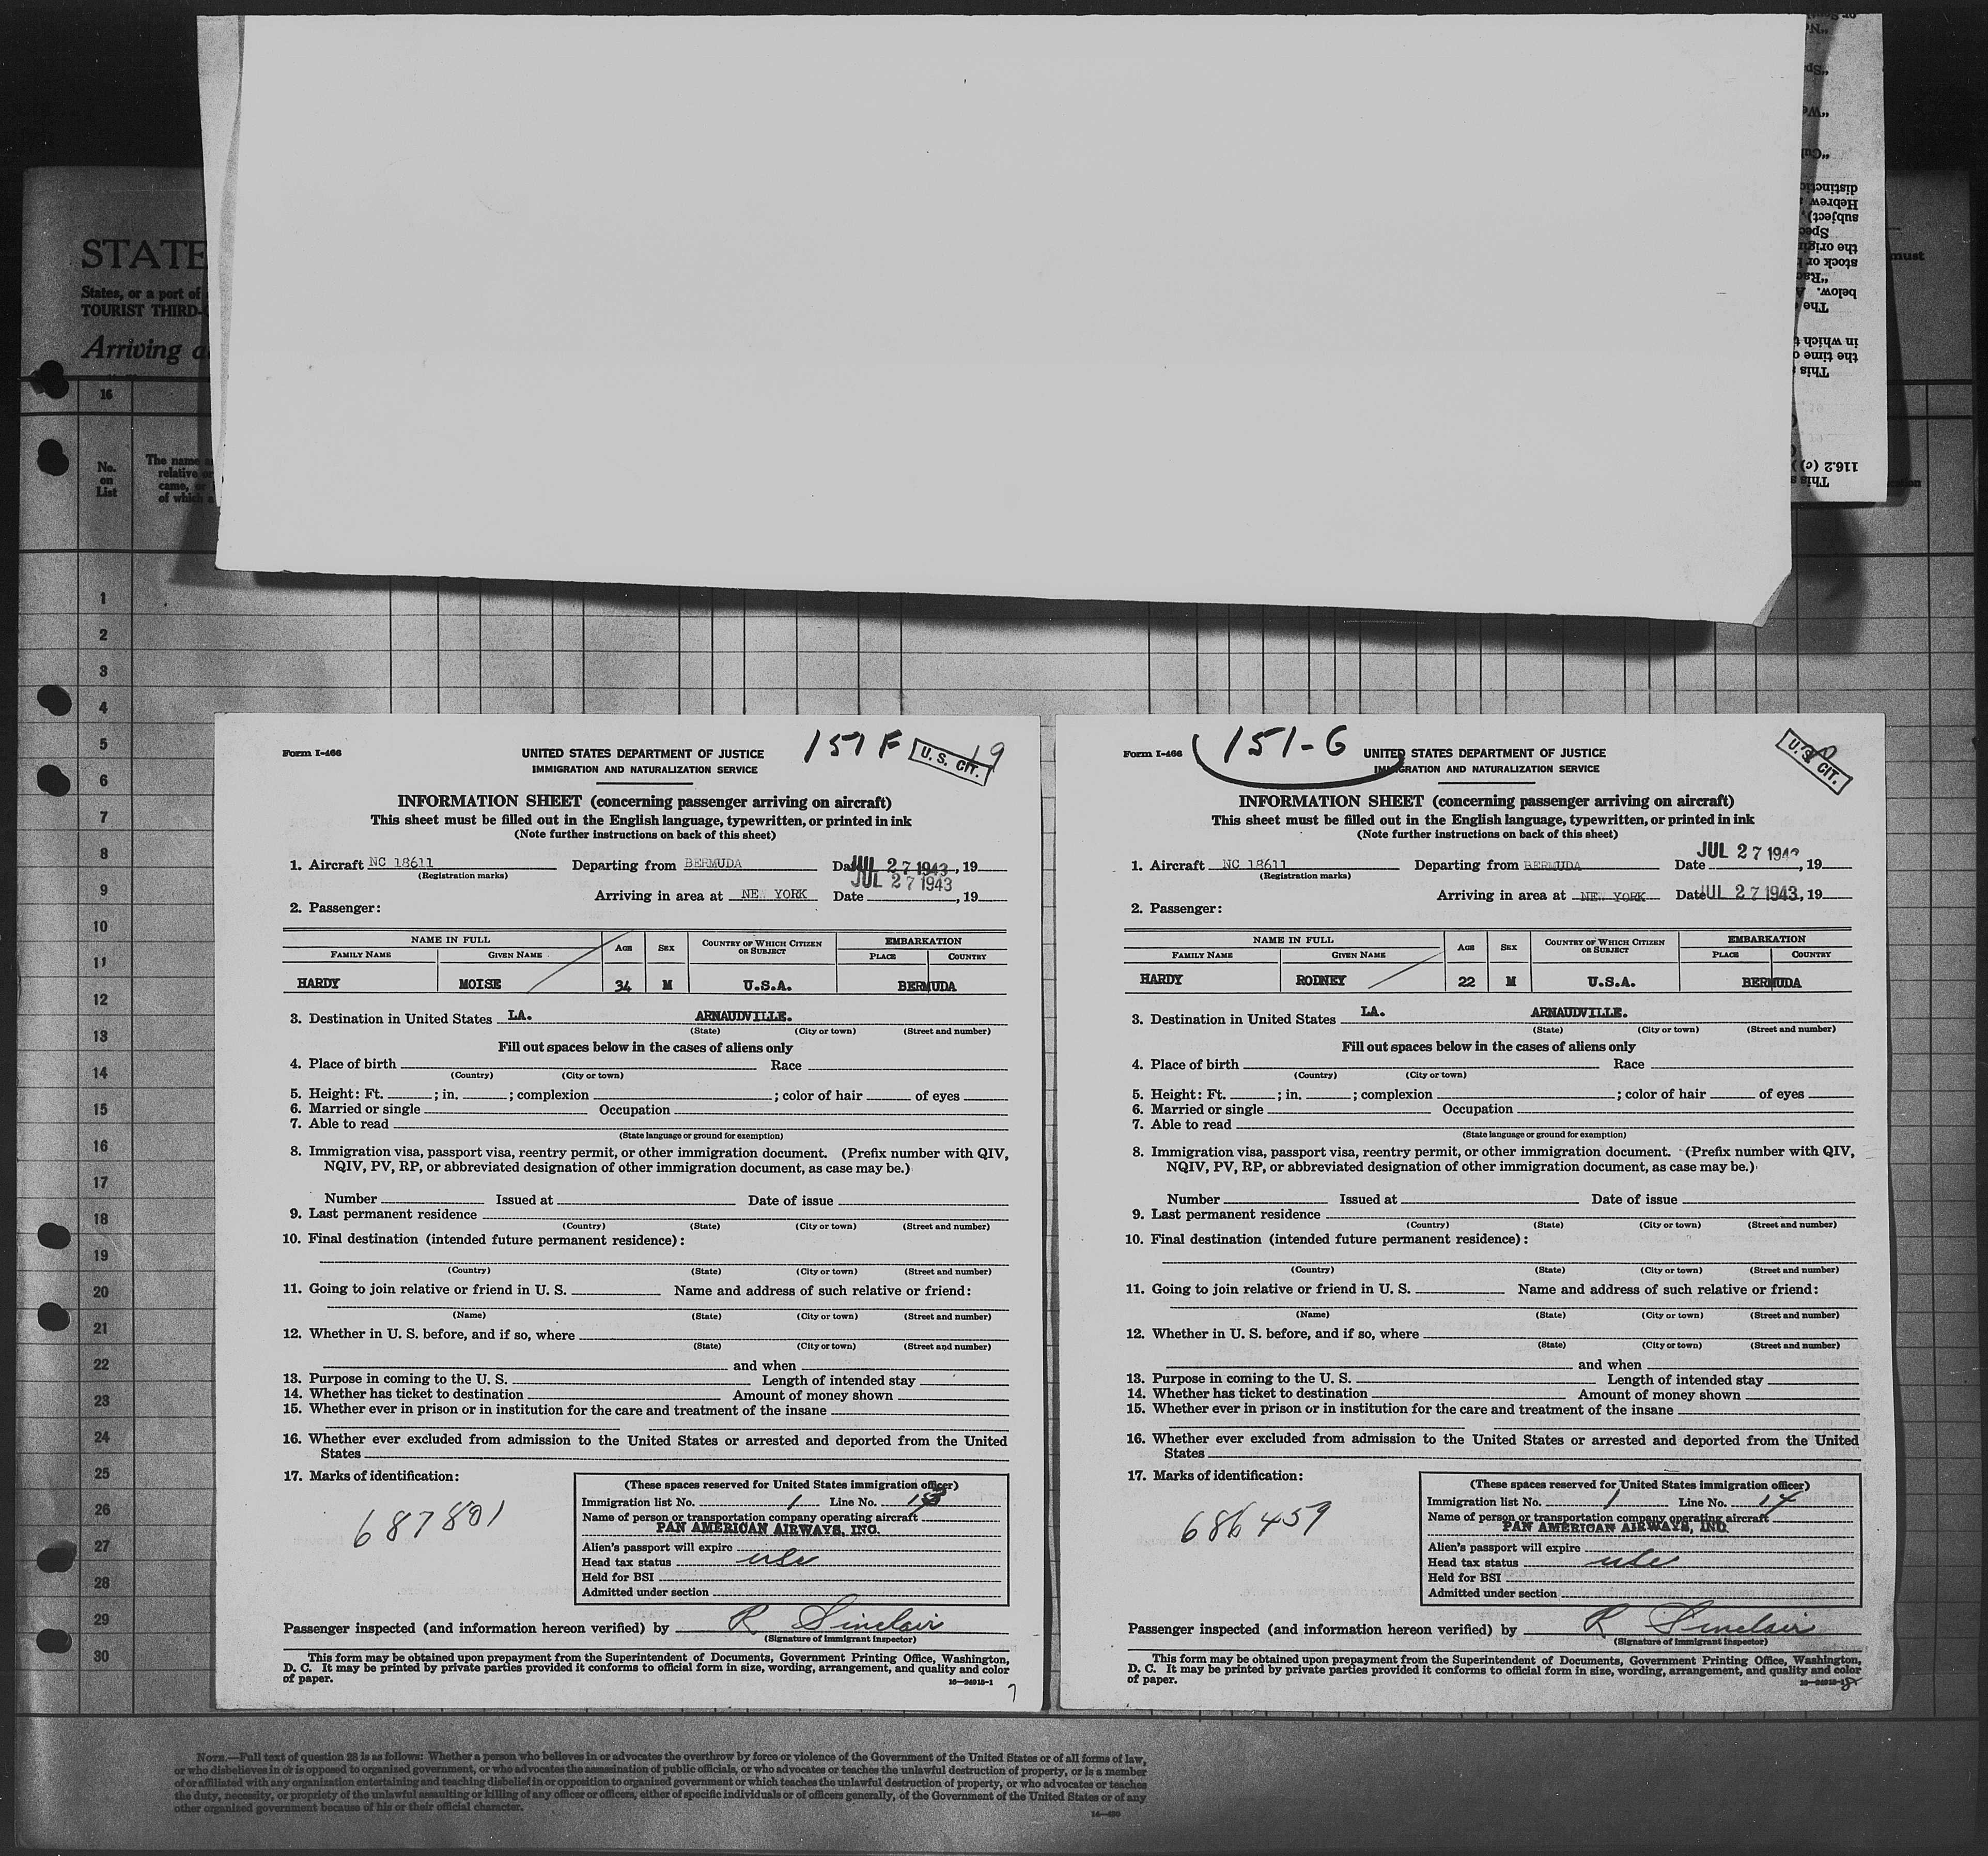 STATE
States, or a port of
TOURIST THIRD-
Arriving a
16
No.
on
List
The name
relative
came,
of which
must
1
2
3
4
5
6
7
8
9
10
11
12
13
14
15
16
17
18
19
20
21
22
23
24
25
26
27
28
29
30
Form I-466
UNITED STATES DEPARTMENT OF JUSTICE
151 F
U. S. CIT.
19
IMMIGRATION AND NATURALIZATION SERVICE
INFORMATION SHEET (concerning passenger arriving on aircraft)
This sheet must be filled out in the English language, typewritten, or printed in ink
(Note further instructions on back of this sheet)
1. Aircraft NC 18611 Departing from BERMUDA Date JUL 27 1943, 19
(Registration marks)
Arriving in area at NEW YORK Date JUL 27 1943, 19
2. Passenger:
NAME IN FULL AGE SEX COUNTRY OF WHICH CITIZEN OR SUBJECT EMBARKATION
FAMILY NAME GIVEN NAME PLACE COUNTRY
HARDY MOISE 34 M U.S.A. BERMUDA
3. Destination in United States LA. ARNAUDVILLE.
(State) (City or town) (Street and number)
Fill out spaces below in the cases of aliens only
4. Place of birth Race
(Country) (City or town)
5. Height: Ft. ; in. ; complexion ; color of hair of eyes
6. Married or single Occupation
7. Able to read
(State language or ground for exemption)
8. Immigration visa, passport visa, reentry permit, or other immigration document. (Prefix number with QIV,
NQIV, PV, RP, or abbreviated designation of other immigration document, as case may be.)
Number Issued at Date of issue
9. Last permanent residence
(Country) (State) (City or town) (Street and number)
10. Final destination (intended future permanent residence):
(Country) (State) (City or town) (Street and number)
11. Going to join relative or friend in U. S. Name and address of such relative or friend:
(Name) (State) (City or town) (Street and number)
12. Whether in U. S. before, and if so, where
(State) (City or town) (Street and number)
and when
13. Purpose in coming to the U. S. Length of intended stay
14. Whether has ticket to destination Amount of money shown
15. Whether ever in prison or in institution for the care and treatment of the insane
16. Whether ever excluded from admission to the United States or arrested and deported from the United
States
17. Marks of identification:
687801
(These spaces reserved for United States immigration officer)
Immigration list No. 1 Line No. 13
Name of person or transportation company operating aircraft
PAN AMERICAN AIRWAYS, INC.
Alien's passport will expire
Head tax status usc
Held for BSI
Admitted under section
Passenger inspected (and information hereon verified) by R Sinclair
(Signature of immigrant inspector)
This form may be obtained upon prepayment from the Superintendent of Documents, Government Printing Office, Washington,
D. C. It may be printed by private parties provided it conforms to official form in size, wording, arrangement, and quality and color
of paper.
16—24915-1
7
Form I-466
151-G
UNITED STATES DEPARTMENT OF JUSTICE
U. S. CIT.
IMMIGRATION AND NATURALIZATION SERVICE
INFORMATION SHEET (concerning passenger arriving on aircraft)
This sheet must be filled out in the English language, typewritten, or printed in ink
(Note further instructions on back of this sheet)
1. Aircraft NC 18611 Departing from BERMUDA Date JUL 27 1943, 19
(Registration marks)
Arriving in area at NEW YORK Date JUL 27 1943, 19
2. Passenger:
NAME IN FULL AGE SEX COUNTRY OF WHICH CITIZEN OR SUBJECT EMBARKATION
FAMILY NAME GIVEN NAME PLACE COUNTRY
HARDY RODNEY 22 M U.S.A. BERMUDA
3. Destination in United States LA. ARNAUDVILLE.
(State) (City or town) (Street and number)
Fill out spaces below in the cases of aliens only
4. Place of birth Race
(Country) (City or town)
5. Height: Ft. ; in. ; complexion ; color of hair of eyes
6. Married or single Occupation
7. Able to read
(State language or ground for exemption)
8. Immigration visa, passport visa, reentry permit, or other immigration document. (Prefix number with QIV,
NQIV, PV, RP, or abbreviated designation of other immigration document, as case may be.)
Number Issued at Date of issue
9. Last permanent residence
(Country) (State) (City or town) (Street and number)
10. Final destination (intended future permanent residence):
(Country) (State) (City or town) (Street and number)
11. Going to join relative or friend in U. S. Name and address of such relative or friend:
(Name) (State) (City or town) (Street and number)
12. Whether in U. S. before, and if so, where
(State) (City or town) (Street and number)
and when
13. Purpose in coming to the U. S. Length of intended stay
14. Whether has ticket to destination Amount of money shown
15. Whether ever in prison or in institution for the care and treatment of the insane
16. Whether ever excluded from admission to the United States or arrested and deported from the United
States
17. Marks of identification:
686459
(These spaces reserved for United States immigration officer)
Immigration list No. 1 Line No. 14
Name of person or transportation company operating aircraft
PAN AMERICAN AIRWAYS, INC.
Alien's passport will expire
Head tax status usc
Held for BSI
Admitted under section
Passenger inspected (and information hereon verified) by R Sinclair
(Signature of immigrant inspector)
This form may be obtained upon prepayment from the Superintendent of Documents, Government Printing Office, Washington,
D. C. It may be printed by private parties provided it conforms to official form in size, wording, arrangement, and quality and color
of paper.
16—24915-1
8
NOTE.—Full text of question 28 is as follows: Whether a person who believes in or advocates the overthrow by force or violence of the Government of the United States or of all forms of law,
or who disbelieves in or is opposed to organized government, or who advocates the assassination of public officials, or who advocates or teaches the unlawful destruction of property, or is a member
of or affiliated with any organization entertaining and teaching disbelief in or opposition to organized government or which teaches the unlawful destruction of property, or who advocates or teaches
the duty, necessity, or propriety of the unlawful assaulting or killing of any officer or officers, either of specific individuals or of officers generally, of the Government of the United States or of any
other organized government because of his or their official character.
14—430